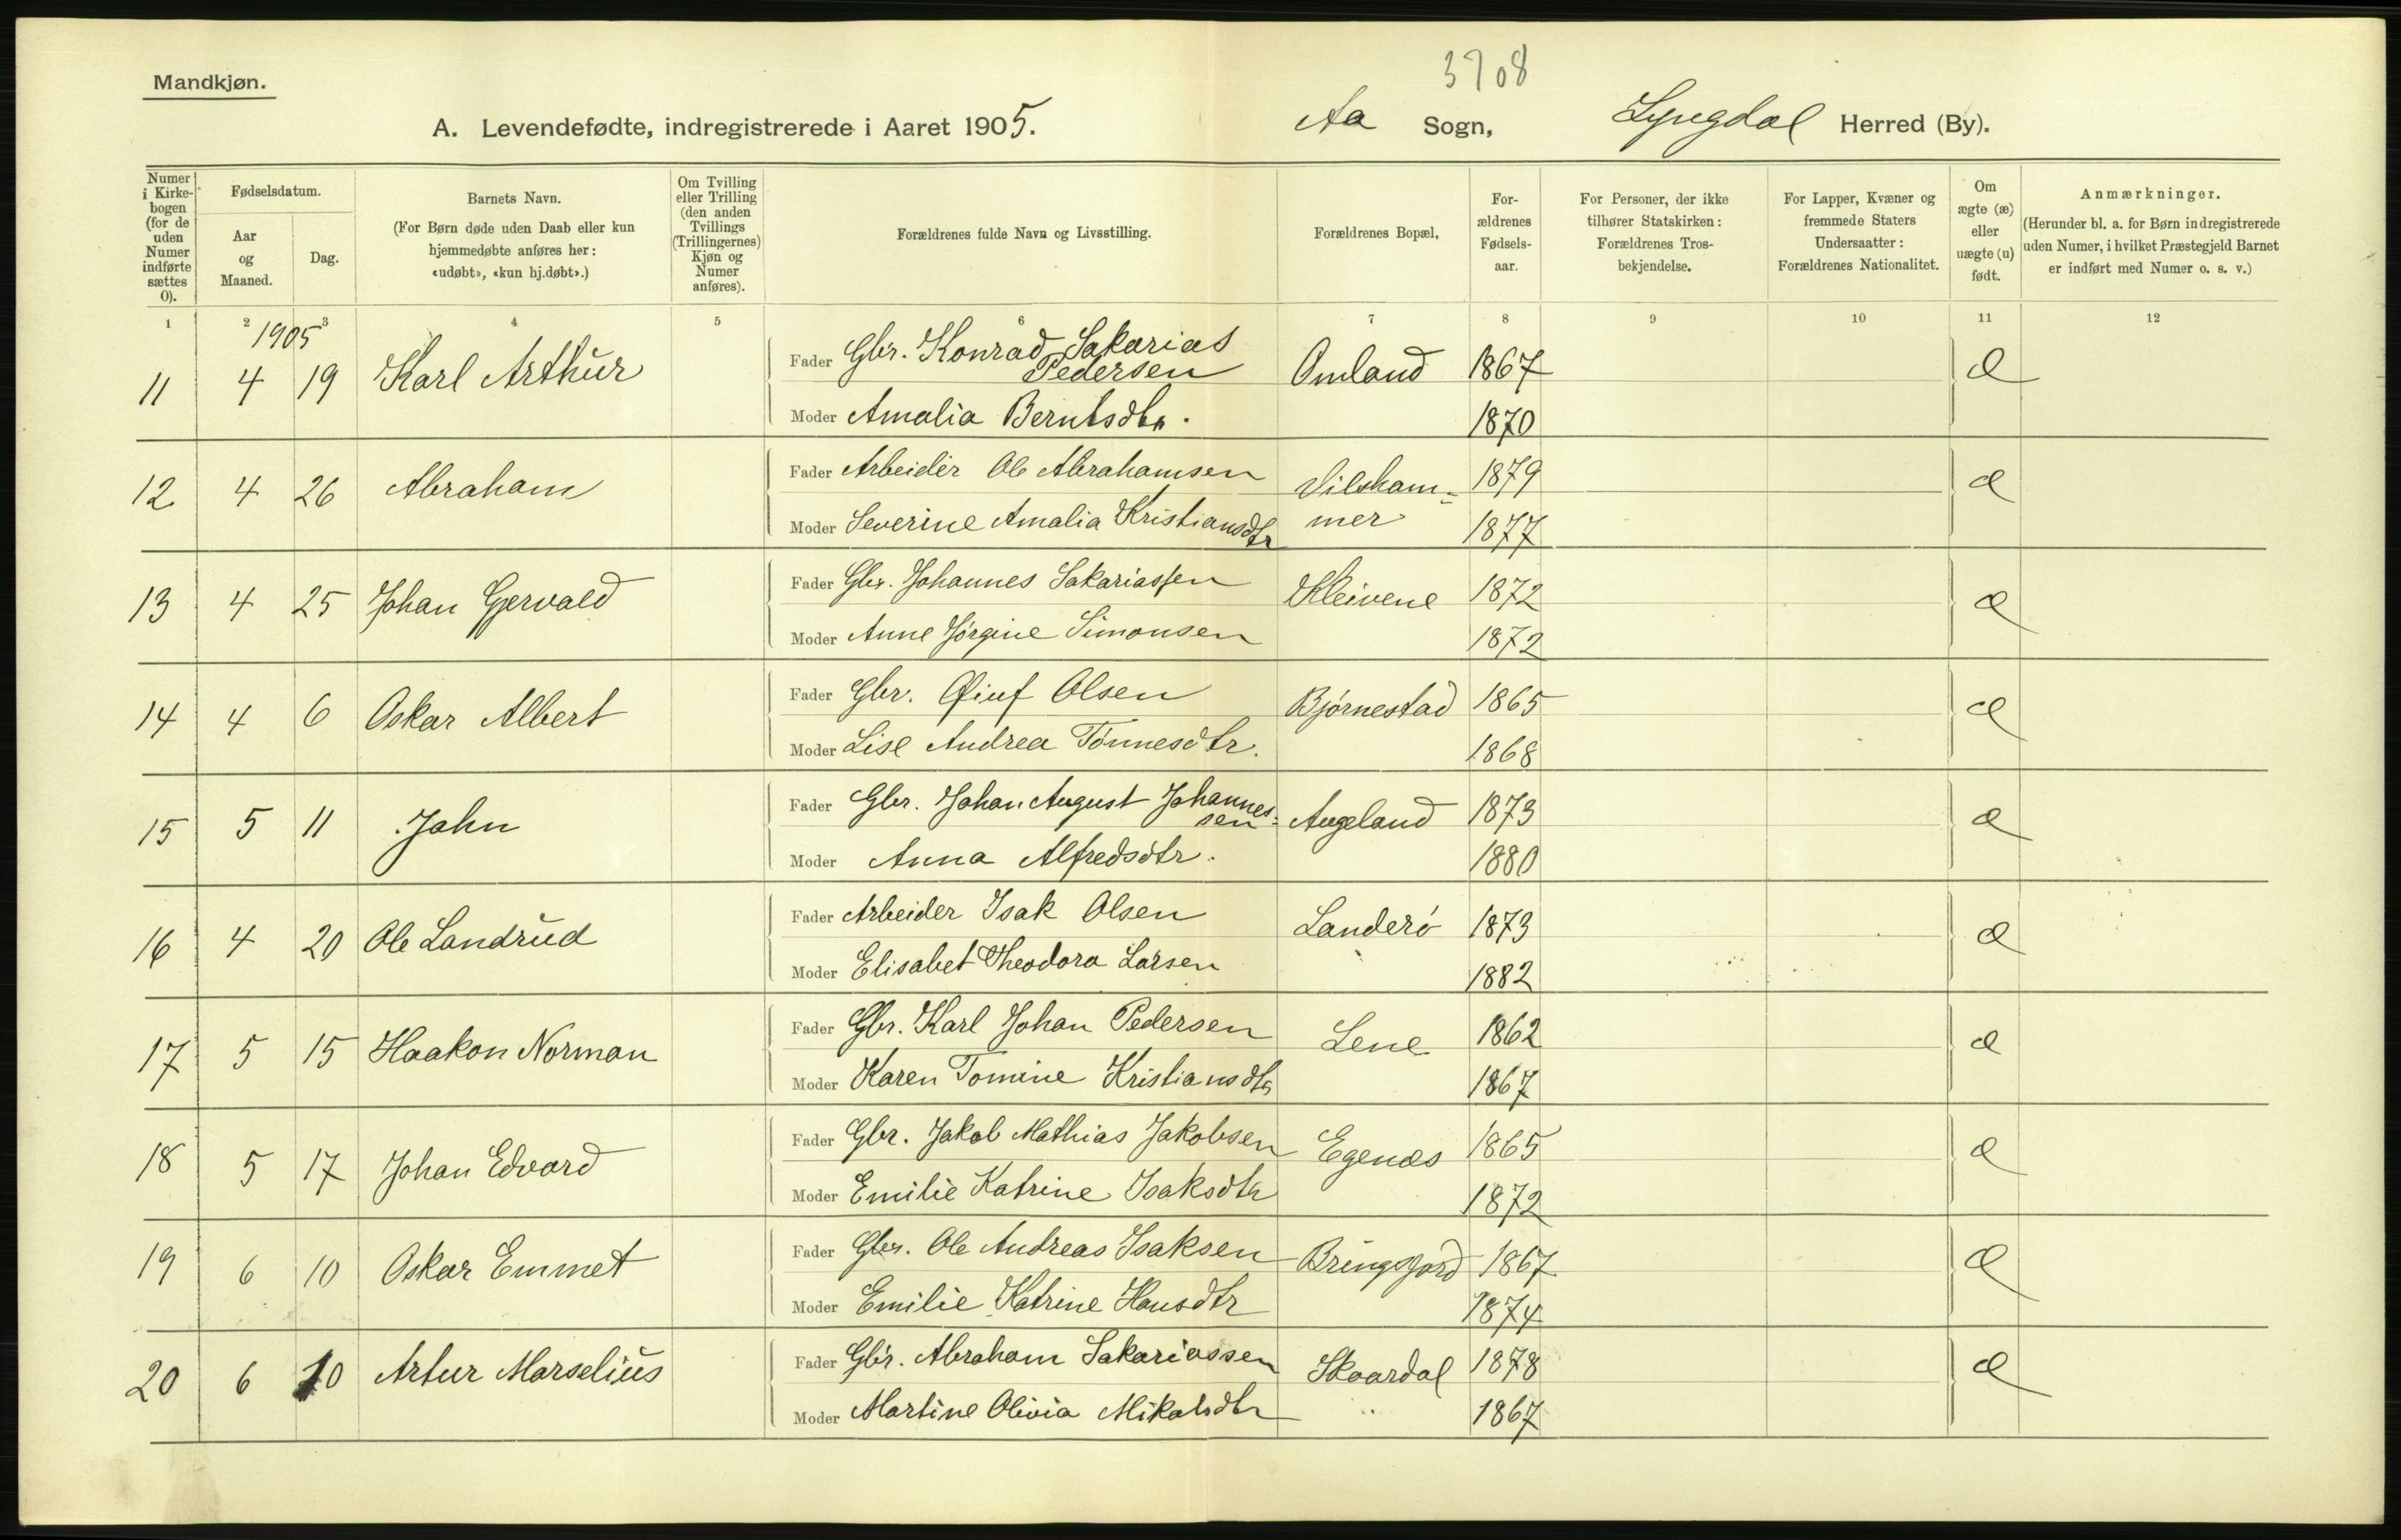 3708
Mandkjøn.
A. Levendefødte, indregistrerede i Aaret 1905.
Aa Sogn, Lyngdal Herred (By).
Numer i Kirkebogen (for de uden Numer indførte sættes 0).
Fødselsdatum.
Aar og Maaned.
Dag.
Barnets Navn.
(For Børn døde uden Daab eller kun hjemmedøbte anføres her: «udøbt», «kun hj.døbt».)
Om Tvilling eller Trilling (den anden Tvillings (Trillingernes) Kjøn og Numer anføres).
Forældrenes fulde Navn og Livsstilling.
Forældrenes Bopæl,
For-ældrenes Fødsels-aar.
For Personer, der ikke tilhører Statskirken: Forældrenes Tros-bekjendelse.
For Lapper, Kvæner og fremmede Staters Undersaatter: Forældrenes Nationalitet.
Om ægte (æ) eller uægte (u) født.
Anmærkninger.
(Herunder bl. a. for Børn indregistrerede uden Numer, i hvilket Præstegjeld Barnet er indført med Numer o. s. v.)
1 2 3 4 5 6 7 8 9 10 11 12
1905
11 4 19 Karl Arthur Fader Gbr. Konrad Sakarias Pedersen Omland 1867 æ
Moder Amalia Berntsdtr. 1870
12 4 26 Abraham Fader Arbeider Ole Abrahamsen Vilsham- 1879 æ
Moder Severine Amalia Kristiansdtr mer 1877
13 4 25 Johan Gervald Fader Gbr. Johannes Sakariassen Kleivene 1872 æ
Moder Anne Jørgine Simonsen 1872
14 4 6 Oskar Albert Fader Gbr. Øiuf Olsen Bjørnestad 1865 æ
Moder Lise Andrea Tønnesdtr. 1868
15 5 11 John Fader Gbr. Johan August Johannessen Augeland 1873 æ
Moder Anna Alfredsdtr. 1880
16 4 20 Ole Landrud Fader Arbeider Isak Olsen Landerø 1873 æ
Moder Elisabet Theodora Larsen 1882
17 5 15 Haakon Norman Fader Gbr. Karl Johan Pedersen Lene 1862 æ
Moder Karen Tomine Kristiansdtr 1867
18 5 17 Johan Edvard Fader Gbr. Jakob Mathias Jakobsen Egenæs 1865 æ
Moder Emilie Katrine Isaksdtr 1872
19 6 10 Oskar Emmet Fader Gbr. Ole Andreas Isaksen Bringsjord 1867 æ
Moder Emilie Katrine Hansdtr 1874
20 6 10 Artur Marselius Fader Gbr. Abraham Sakariassen Skaardal 1878 æ
Moder Martine Olivia Mikalsdtr " 1867